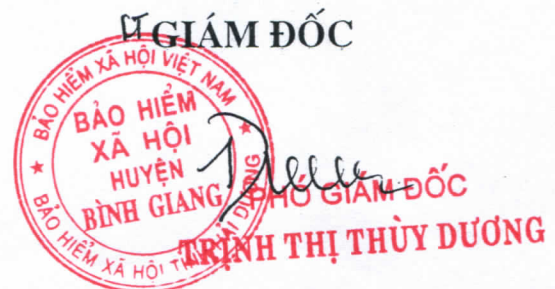 KT GIÁM ĐỐC
BẢO HIỂM XÃ HỘI VIỆT NAM
BẢO HIỂM
XÃ HỘI
HUYỆN
BÌNH GIANG
BẢO HIỂM XÃ HỘI TỈNH HẢI DƯƠNG
PHÓ GIÁM ĐỐC
TRỊNH THỊ THÙY DƯƠNG